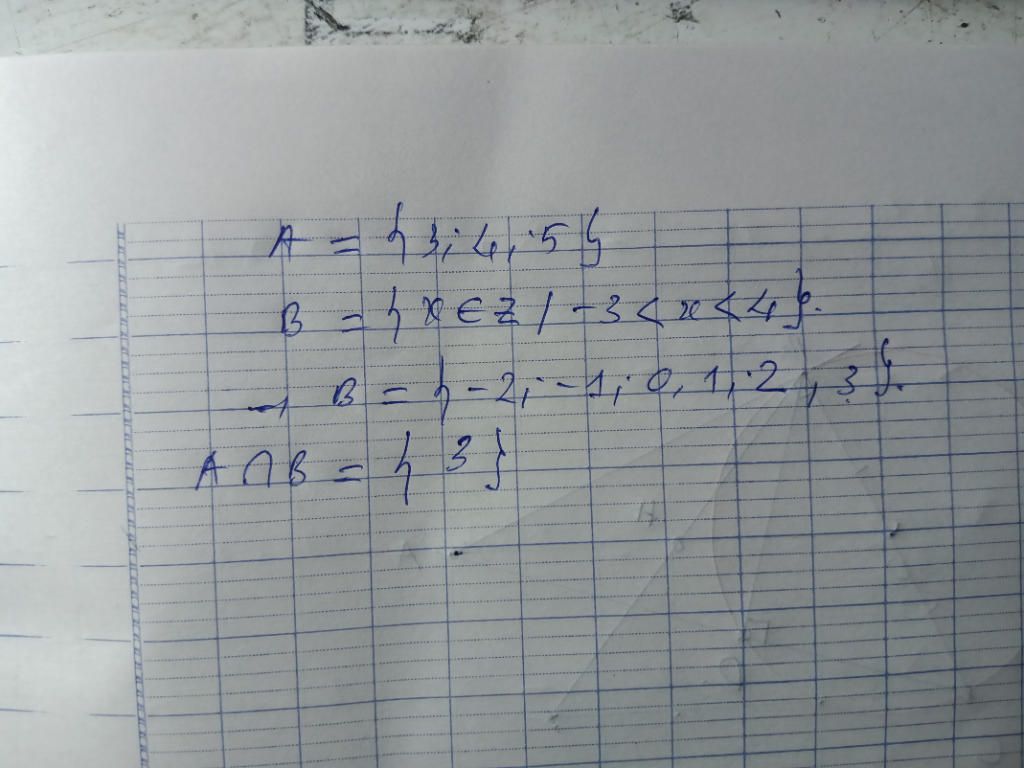 A = { 3; 4; 5 }
B = { x ∈ Z / -3 < x < 4 }.
→ B = { -2; -1; 0, 1; 2, 3 }.
A ∩ B = { 3 }